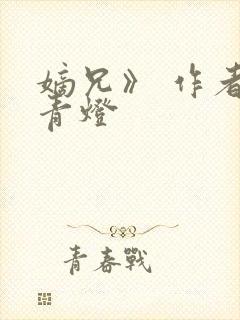 嫡兄》 作者
青燈
青春戰